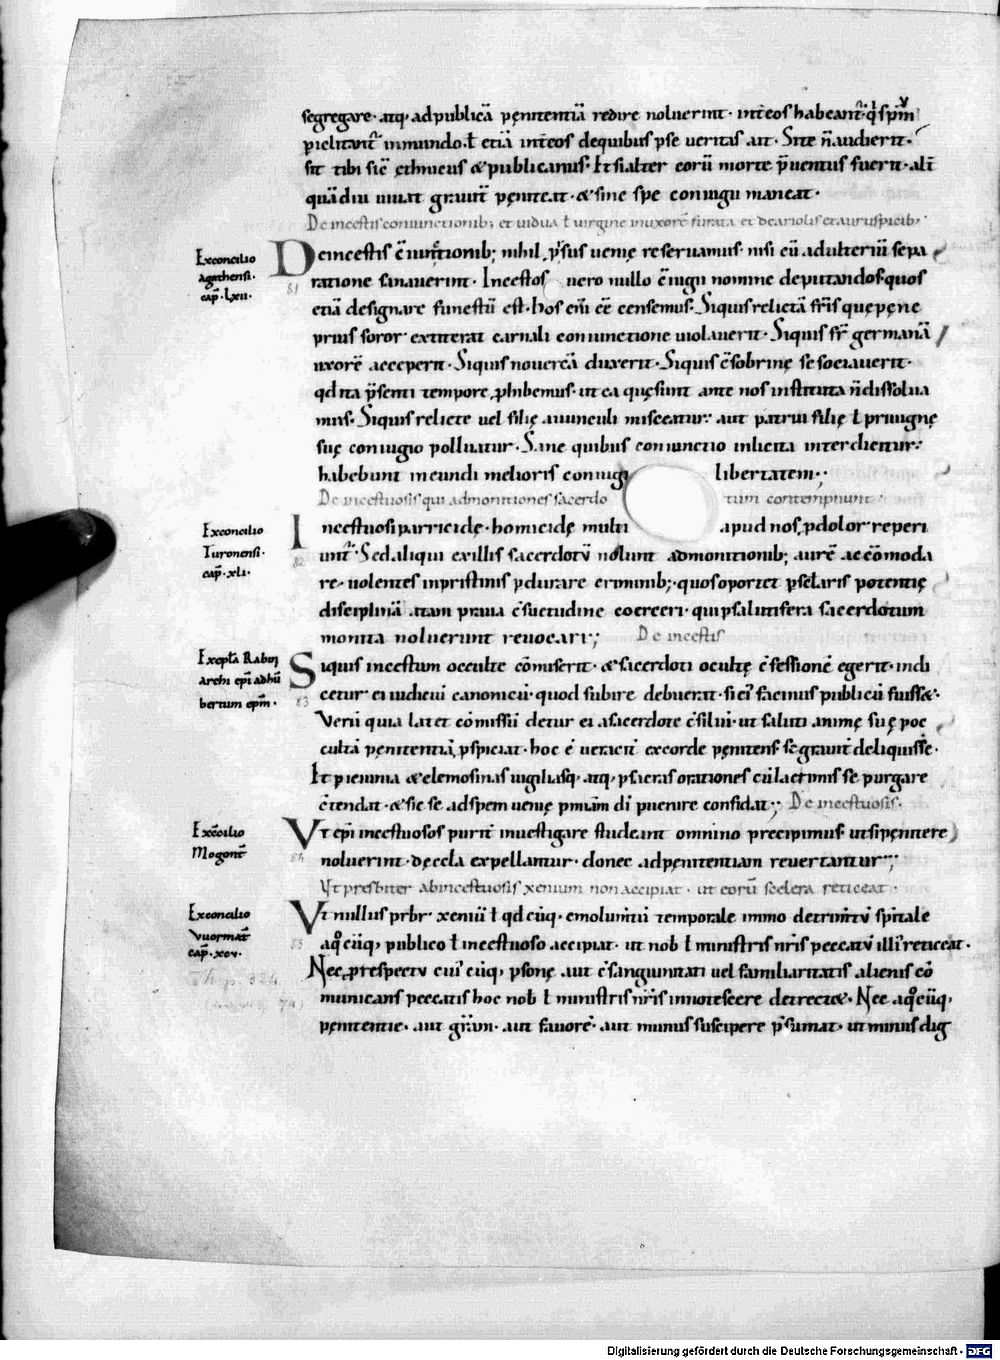 segregare· atq; ad publicā pęnitentiā redire noluerint· int̄ eos habeant̄· q̄ sp̄m
piclitant̄ in mundo· ł etiā int̄ eos de quibus p̄se veritas ait· Si te n̄ audierit·
sit tibi sic̄ ęthnicus & publicanus· Et si alter eorū morte p̄uentus fuerit· alt̄
quādiu uiuit grauit̄ pęniteat· & sine spe coniugii maneat·
De incestis coniunctionib; et uidua ł uirgine in uxorē furata et de ariolis et auruspicib;
Ex concilio
Agathensi·
cap̄· lxii·
De incestis c̄iunctionib; nihil p̄rsus uenię reseruamus· nisi cū adulteriū sepa
81
ratione sanauerint· Incestos uero nullo c̄iugii nomine deputandos· quos
etiā designare funestū est· hos enī eē censemus· Si quis relictā fr̄is quę pęne
prius soror extiterat carnali coniunctione uiolauerit· Si quis fr̄ germanā
uxorē acceperit· Si quis nouercā duxerit· Si quis c̄sobrinę se sociauerit·
qđ ita p̄senti tempore phibemus· ut ea quę sunt ante nos instituta n̄ dissolua
mus· Si quis relicte uel filię auunculi misceatur· aut patrui filię ł priuignę
suę coniugio polluatur· Sane quibus coniunctio inlicita interdicitur·
habebunt ineundi melioris coniugii libertatem·;
De incestuosis qui admonitiones sacerdotum contempnunt·
Ex concilio
Turonensi·
cap̄· xli·
Incestuosi parricidę· homicidę multi apud nos p dolor reperi
82
unt̄· Sed aliqui ex illis sacerdotū nolunt admonitionib; aurē accōmoda
re· uolentes in pristinis pdurare criminib;· quos oportet p sęlaris potentię
disciplinā a tam praua c̄suetudine coerceri· qui p salutifera sacerdotum
monita noluerunt reuocari·; De incestis
Ex epl̄a Rabani
Archi epī ad hū
bertum epm̄·
Si quis incestum occulte cōmiserit· & sacerdoti occultę c̄fessionē egerit· indi
83
cetur ei iudiciū canonicū· quod subire debuerat· si ei' facinus publicū fuisset·
Verū quia latet cōmissū detur ei a sacerdote c̄siliū· ut saluti animę suę p oc
cultā pęnitentiā pspiciat· hoc ē ueracit̄ ex corde pęnitens se grauit̄ deliquisse·
Et p ieiunia & elemosinas uigiliasq; atq; p sacras orationes cū lacrimis se purgare
c̄tendat· & sic se ad spem uenię p miām dī puenire confidat·; De incestuosis·
Ex c̄cilio
Mogont̄
Vt epī incestuosos purit̄ inuestigare studeant omnino precipimus· ut si pęnitere
84
noluerint· de ęccla expellantur· donec ad pęnitentiam reuertantur·;
Vt presbiter ab incestuosis xenium non accipiat· ut eorū scelera reticeat·
Ex concilio
Vuormat̄
cap̄· xcv·
Vt nullus prbr· xeniū ł qđ cūq; emolumtū temporale immo detrimtū spitale
85
a q̊ cūq; publico ł incestuoso accipiat· ut nob ł ministris nr̄is peccatū illi' reticeat·
Nec p respectu cui' cūq; psonę aut c̄sanguinitati uel familiaritatis alienis cō
municans peccatis hoc nob ł ministris nr̄is innotescere detrectet· Nec a q̊cūq;
pęnitente· aut gr̄am· aut fauorē· aut munus suscipere p̄sumat· ut minus dig
Digitalisierung gefördert durch die Deutsche Forschungsgemeinschaft - DFG